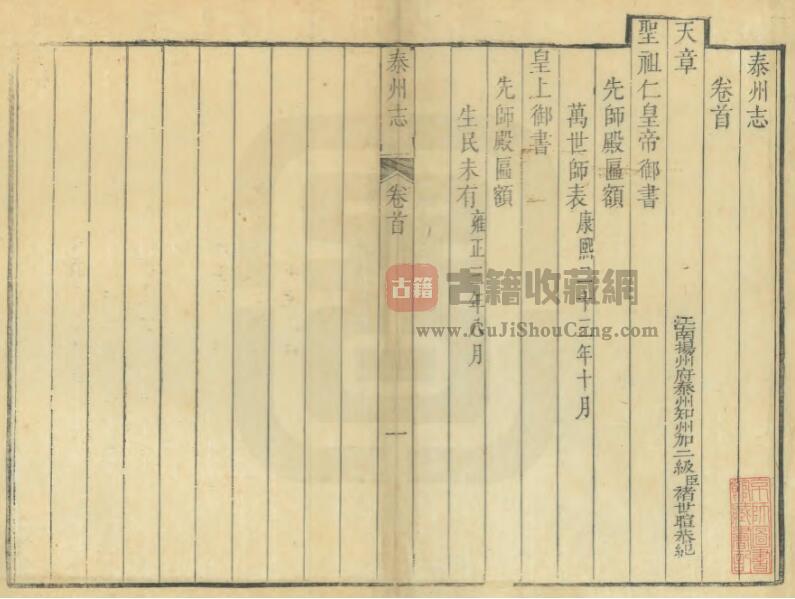 泰州志
卷首
天章
江南揚州府泰州知州加二級臣褚世暄恭紀
聖祖仁皇帝御書
先師殿匾額
萬世師表康熙二十三年十月
皇上御書
先師殿匾額
生民未有雍正三年八月
泰州志
卷首
一
京師圖書館藏書記
古籍
古籍收藏網
www.GuJiShouCang.com